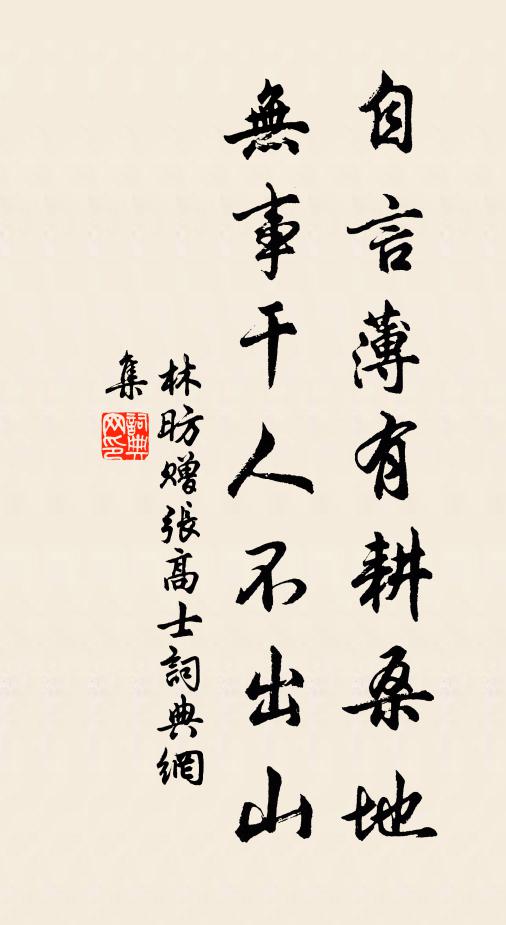 自言薄有耕桑地
無事干人不出山
林昉贈張高士詞典網
集
詞典
网印